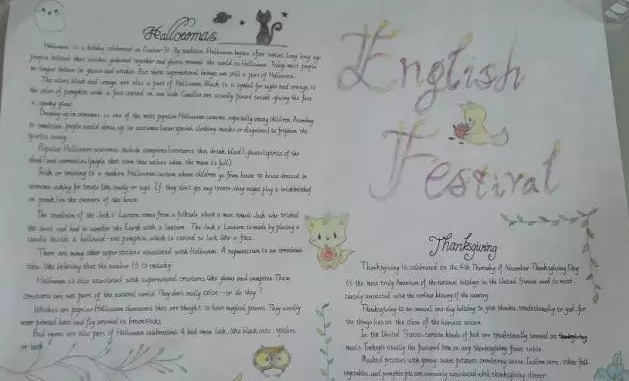 Hallowmas
Halloween is a holiday celebrated on October 31. By tradition Halloween begins after sunset. Long long ago
people believed that witches gathered together and ghosts roamed the world on Halloween. Today most people
no longer believe in ghosts and witches. But these supernatural beings are still a part of Halloween.
The colors black and orange are also a part of Halloween. Black is a symbol for night and orange is
the color of pumpkin with a face carved on one side. Candles are usually placed inside giving the face
a spooky glow.
Dressing up in costumes is one of the most popular Halloween customs, especially among children. According
to tradition people would dress up in costumes (wear special clothing masks or disguises) to frighten the
spirits away.
Popular Halloween costumes include vampires (creatures that drink blood), ghosts (spirits of the
dead) and werewolves (people that turn into wolves when the moon is full).
Trick or treating is a modern Halloween custom where children go from house to house dressed in
costume asking for treats like candy or toys. If they don't get any treats, they might play a
or prank on the owners of the house.
The tradition of the Jack o' Lantern comes from a folktale about a man named Jack who tricked
the devil and had to wander the Earth with a lantern. The Jack o' Lantern is made by placing a
candle inside a hollowed-out pumpkin which is carved to look like a face.
There are many other superstitions associated with Halloween. A superstition is an irrational
idea, like believing that the number 13 is unlucky.
Halloween is also associated with supernatural creatures like ghosts and vampires. These
creatures are not part of the natural world. They don't really exist... or do they?
Witches are popular Halloween characters that are thought to have magical powers. They usually
wear pointed hats and fly around on broomsticks.
Bad omens are also part of Halloween celebrations. A bad omen luck, like black cats, spiders
or bats.
English
Festival
Thanksgiving
Thanksgiving is celebrated on the 4th Thursday of November. Thanksgiving Day
is the most truly American of the national holidays in the United States and is most
closely connected with the earliest history of the country.
Thanksgiving is an annual one-day holiday to give thanks, traditionally to god, for
the things at the close of the harvest season.
In the United States certain kinds of food are traditionally served at thanksgiving
meals. Turkey's usually the featured item on any thanksgiving feast table.
Mashed potatoes with gravy, sweet potatoes, cranberry sauce, Indian corn, other fall
vegetables and pumpkin pie are commonly associated with thanksgiving dinner.